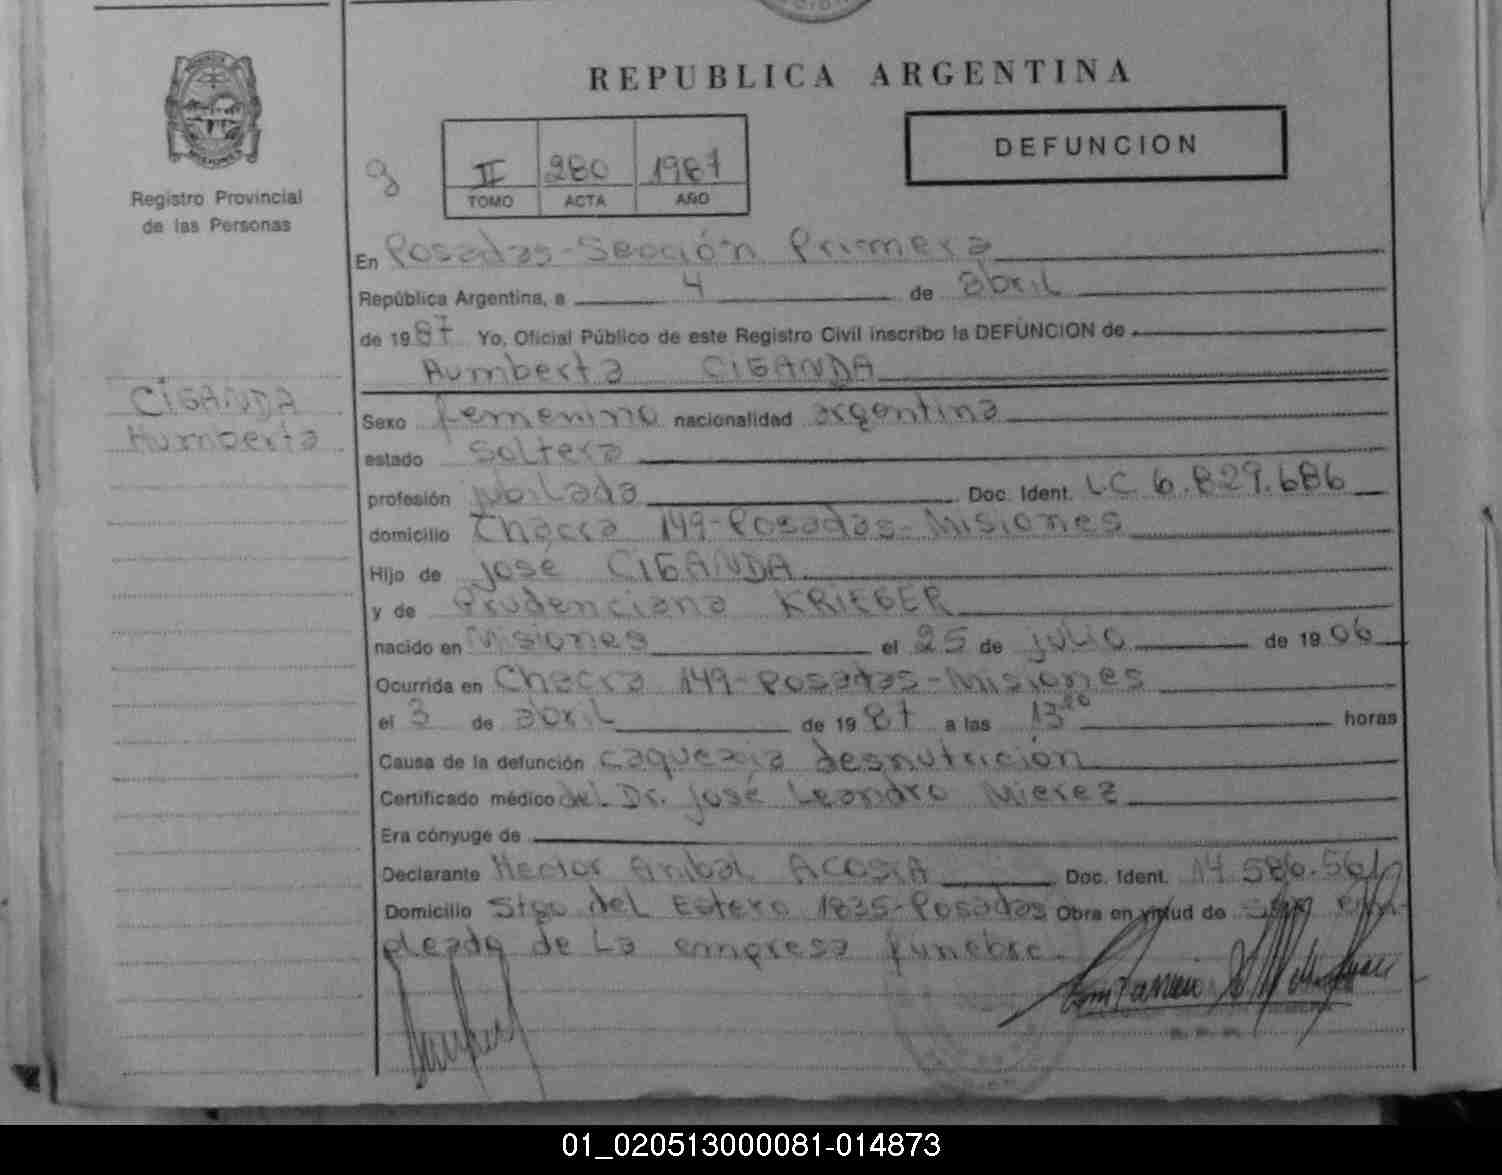 REPUBLICA ARGENTINA
DEFUNCION
II 280 1987
TOMO ACTA AÑO
Registro Provincial
de las Personas
En Posadas-Sección Primera
República Argentina, a 4 de abril
de 1987 Yo, Oficial Público de este Registro Civil inscribo la DEFUNCION de
Humberta CIGANDA
CIGANDA
Humberta
Sexo femenino nacionalidad argentina
estado soltera
profesión jubilada Doc. Ident. L.C 6.829.686
domicilio Chacra 149-Posadas-Misiones
Hijo de José CIGANDA
y de Prudenciana KRIEGER
nacido en Misiones el 25 de julio de 1906
Ocurrida en Chacra 149-Posadas-Misiones
el 3 de abril de 1987 a las 13 horas
Causa de la defunción caquexia desnutrición
Certificado médico del Dr. José Leandro Mierez
Era cónyuge de
Declarante Hector Anibal ACOSTA Doc. Ident. 14.586.561
Domicilio Stgo del Estero 1835-Posadas Obra en virtud de ser em-
pleado de la empresa fúnebre.
01_020513000081-014873